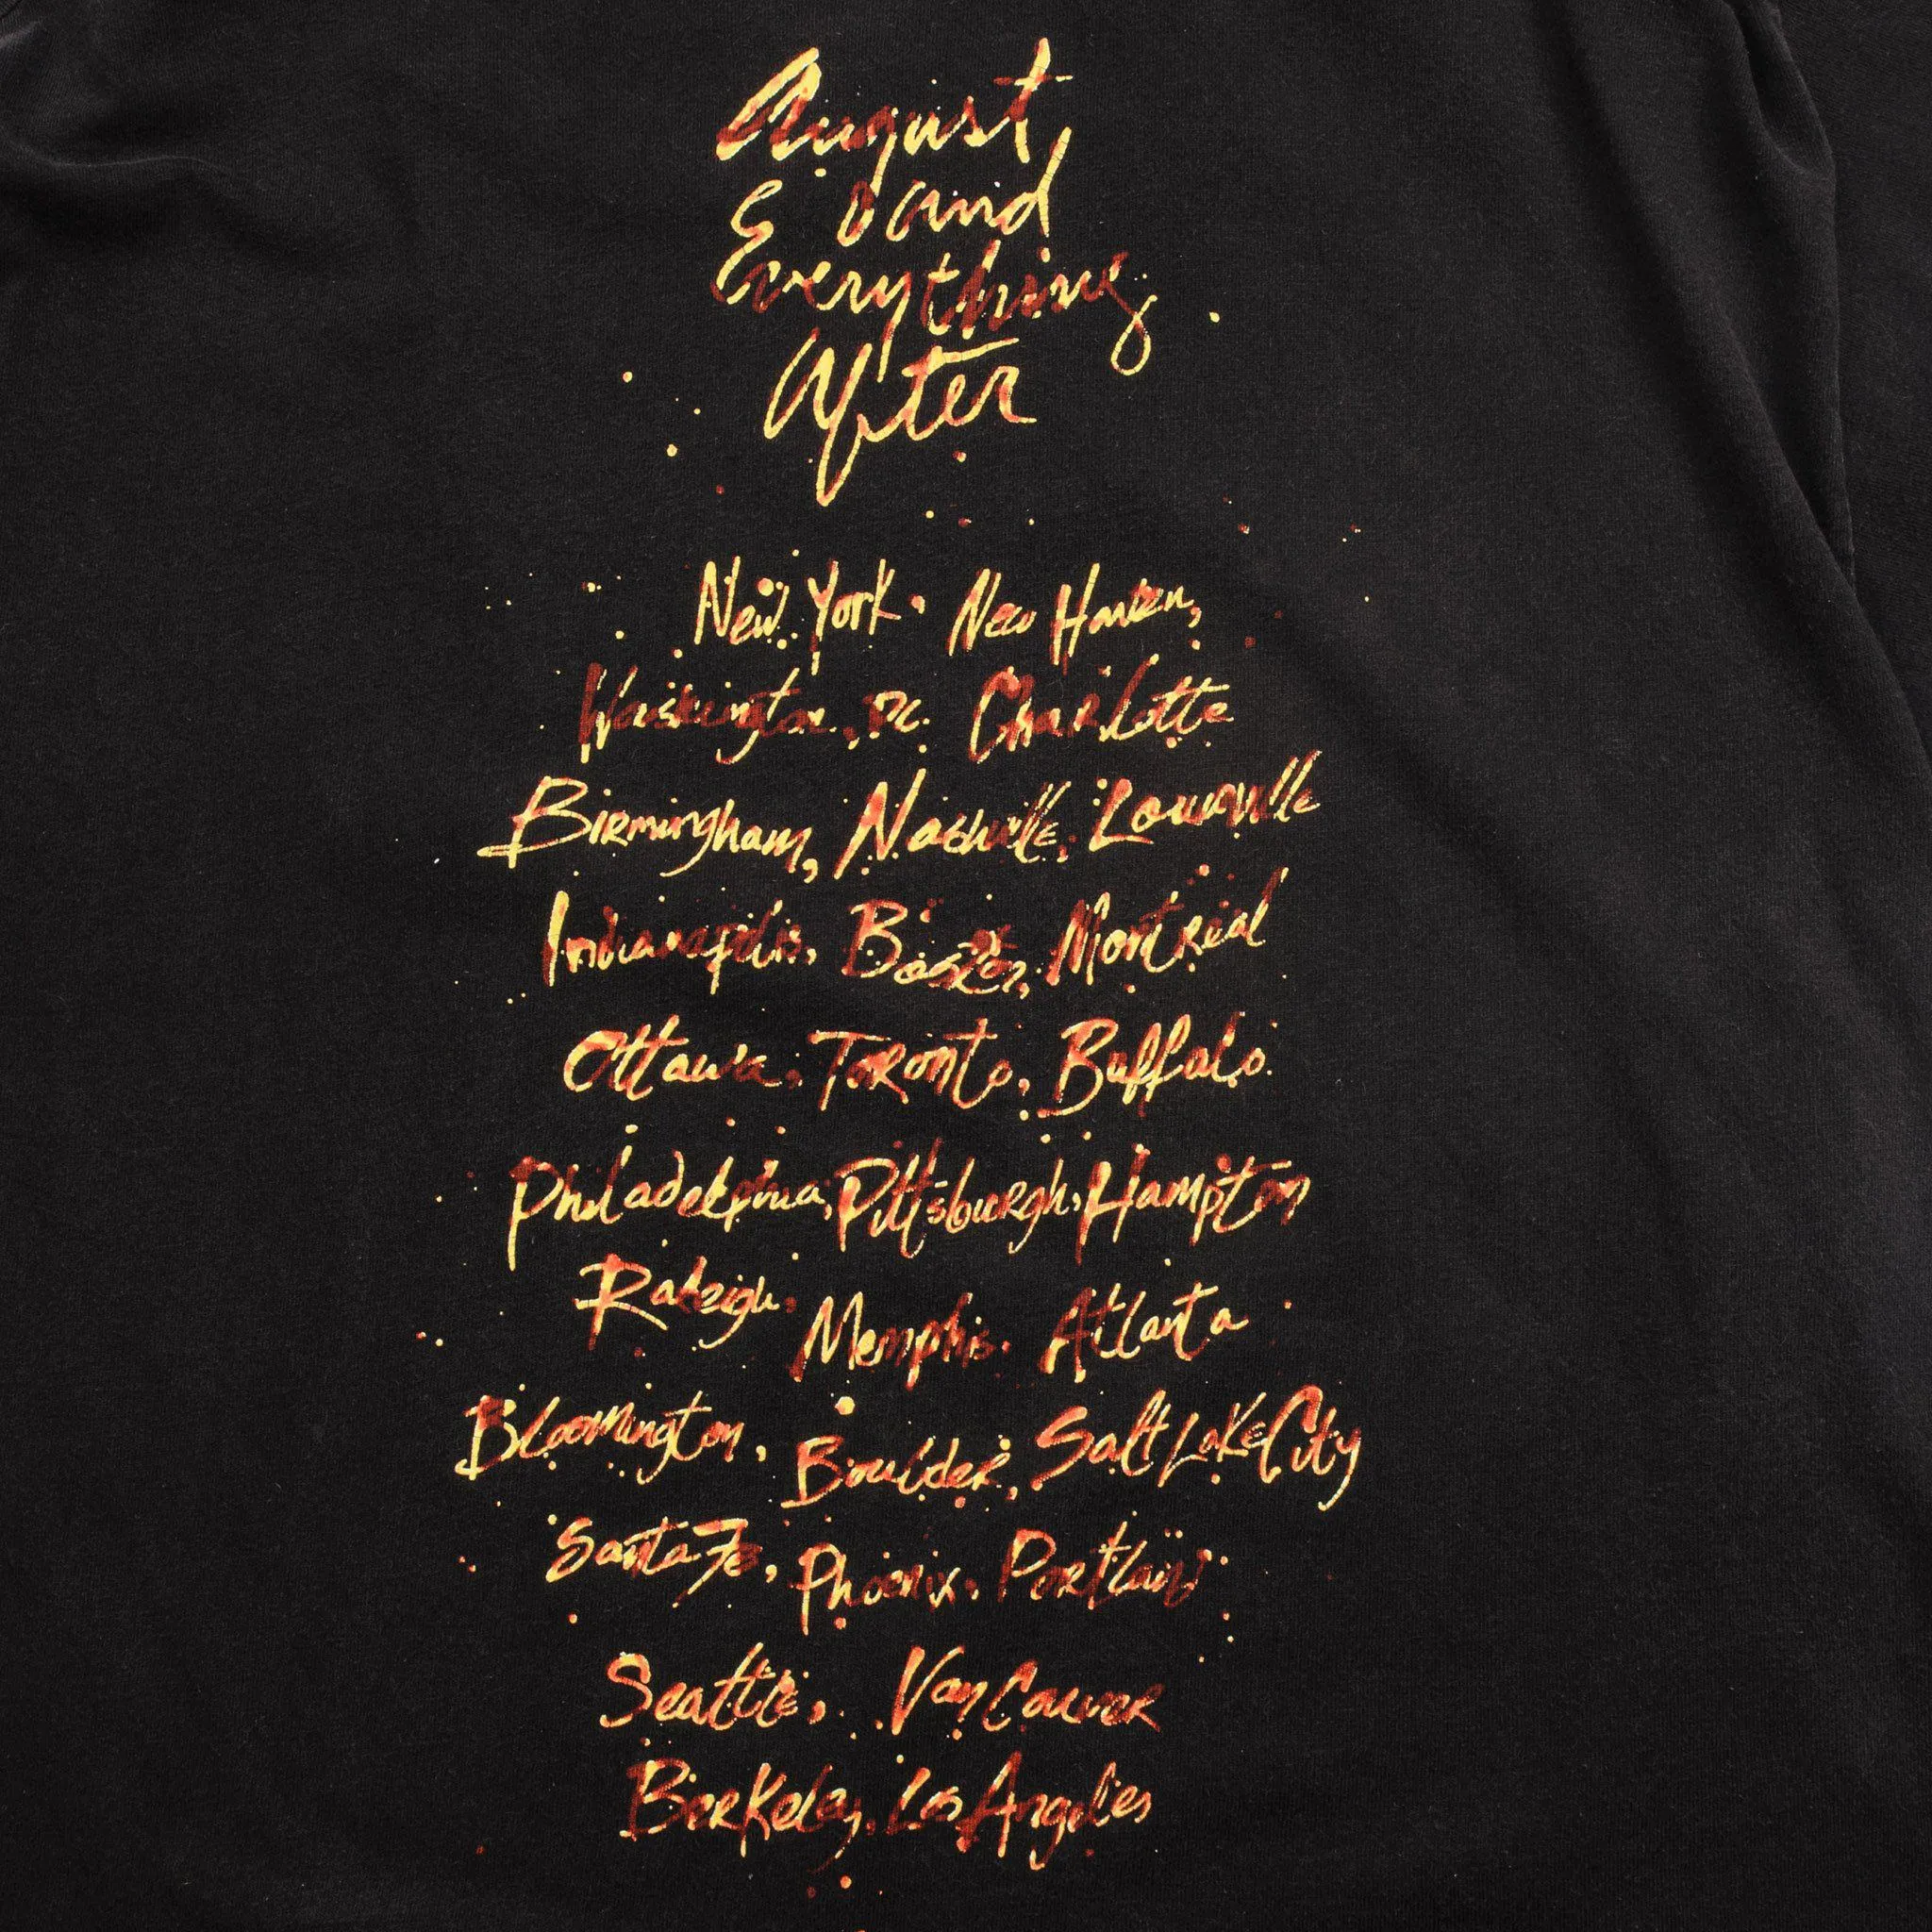 August
& and
Everything
After
New York, New Haven,
Washington, DC. Charlotte
Birmingham, Nashville, Louisville
Indianapolis, Boston, Montreal
Ottawa, Toronto, Buffalo
Philadelphia, Pittsburgh, Hampton
Raleigh, Memphis, Atlanta
Bloomington, Boulder, Salt Lake City
Santa Fe, Phoenix, Portland
Seattle, Vancouver
Berkeley, Los Angeles